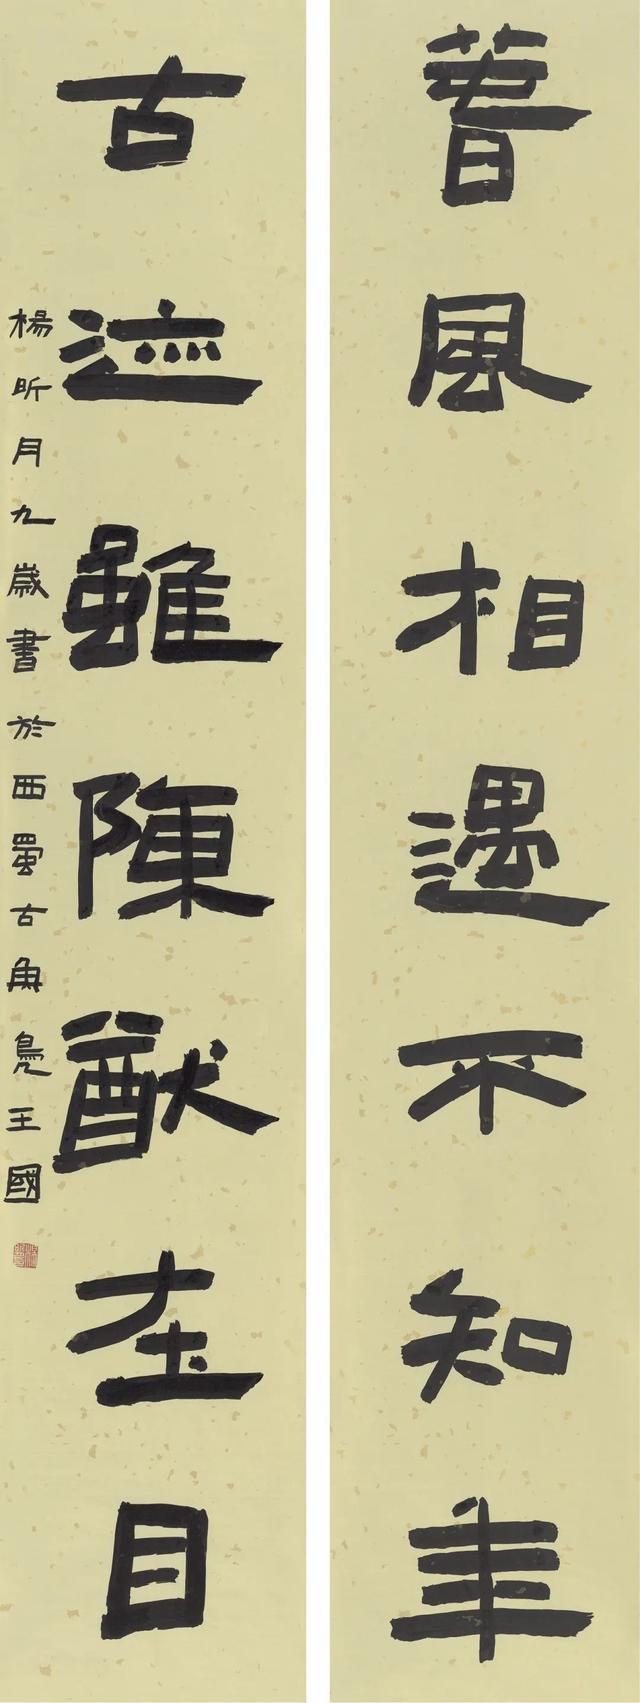 春風相遇不知年
古迹雖陳猷在目
楊昕月九歲書於西蜀古魚鳧王國